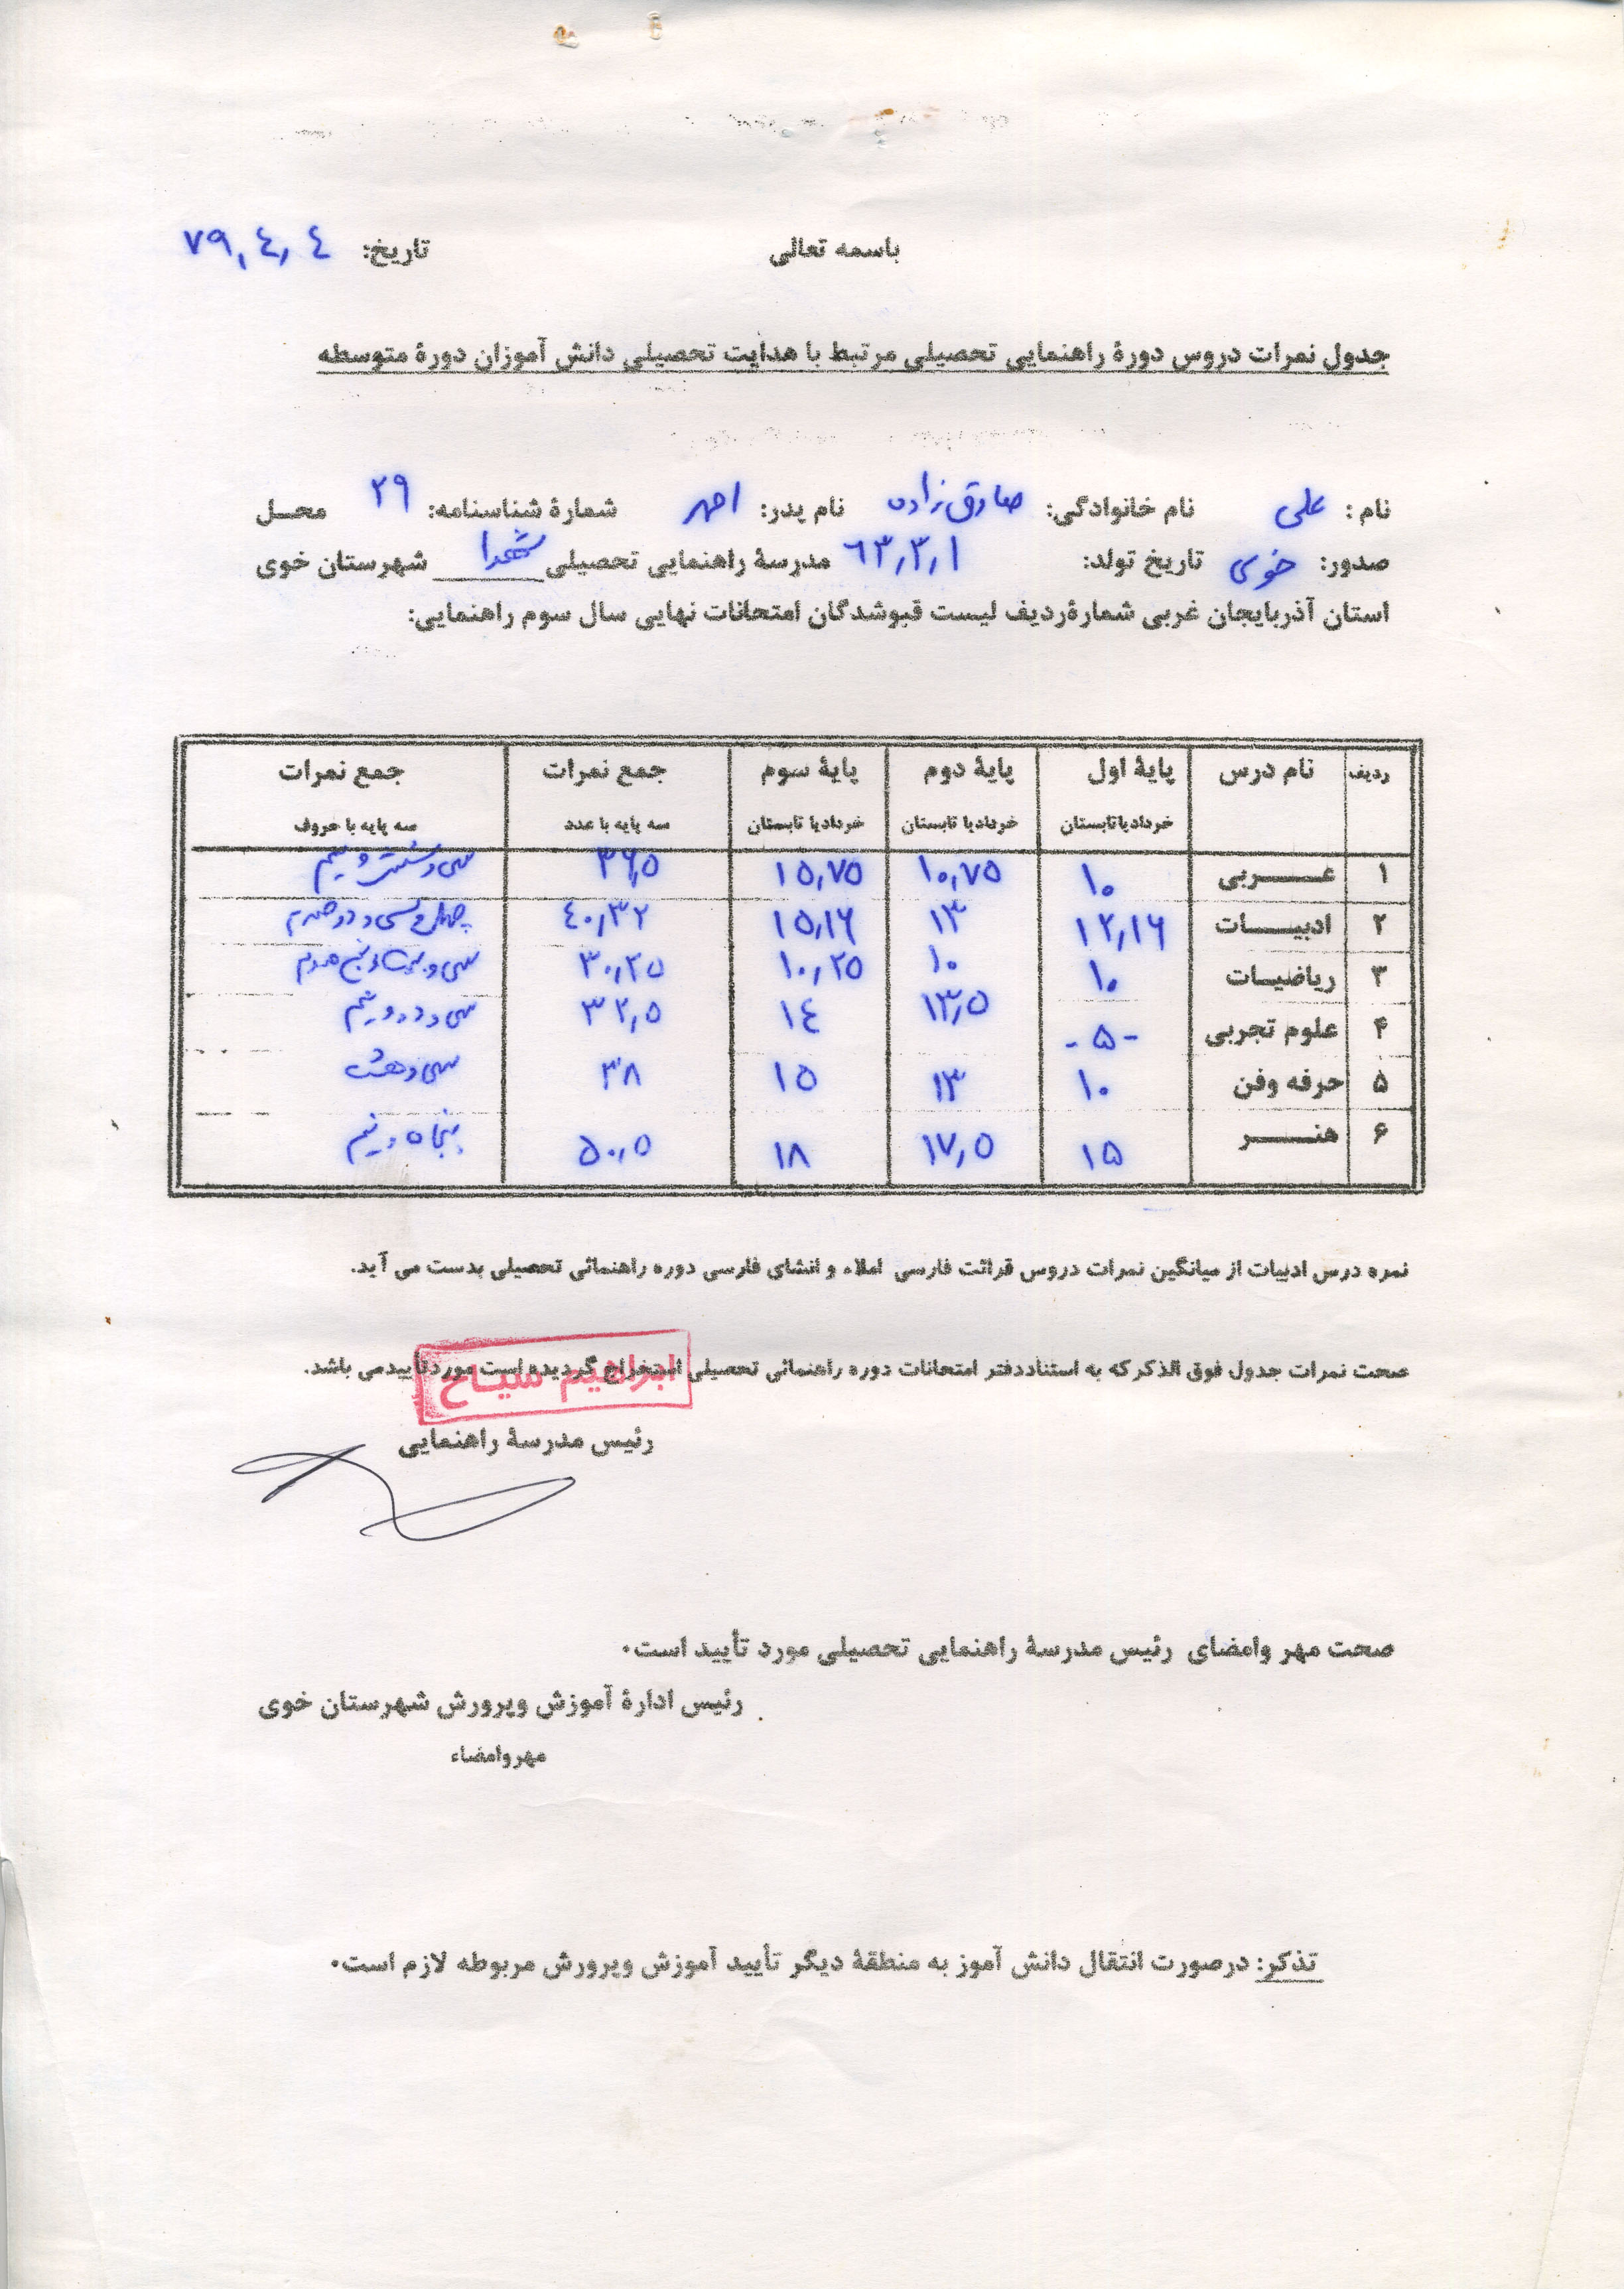 باسمه تعالی
تاریخ: ٧٩,٤,٤
جدول نمرات دروس دورهٔ راهنمایی تحصیلی مرتبط با هدایت تحصیلی دانش آموزان دورهٔ متوسطه
نام : علی نام خانوادگی: صادق زاده نام پدر: احد شمارهٔ شناسنامه: ۲۹ محـل
صدور: خوی تاریخ تولد: ٦٣,٣,١ مدرسهٔ راهنمایی تحصیلی شهدا شهرستان خوی
استان آذربایجان غربی شمارهٔردیف لیست قبوشدگان امتحانات نهایی سال سوم راهنمایی:
ردیف نام درس پایهٔ اول پایهٔ دوم پایهٔ سوم جمع نمرات جمع نمرات
خردادیاتابستان خردادیا تابستان خردادیا تابستان سه پایه با عدد سه پایه با حروف
۱ عـــربی ۱۰ ۱۰,۷۵ ۱۵,۷۵ ۳۶,۵ سی و شش و نیم
۲ ادبیـــات ۱۲,۱۶ ۱۳ ۱۵,۱۶ ٤۰,۳۲ چهل و سی و دو صدم
۳ ریاضیـات ۱۰ ۱۰ ۱۰,۲۵ ۳۰,۲۵ سی و بیست و پنج صدم
۴ علوم تجربی -۵- ۱۳,۵ ۱٤ ۳۲,۵ سی و دو و نیم
۵ حرفه وفن ۱۰ ۱۳ ۱۵ ۳۸ سی و هشت
۶ هنـــر ۱۵ ۱۷,۵ ۱۸ ۵۰,۵ پنجاه و نیم
نمره درس ادبیات از میانگین نمرات دروس قرائت فارسی املاء و انشای فارسی دوره راهنمائی تحصیلی بدست می آید.
صحت نمرات جدول فوق الذکر که به استناددفتر امتحانات دوره راهنمائی تحصیلی استخراج گردیده است موردتأییدمی باشد.
ابراهیم سیـاح
رئیس مدرسهٔ راهنمایی
صحت مهر وامضای رئیس مدرسهٔ راهنمایی تحصیلی مورد تأیید است.
رئیس ادارهٔ آموزش وپرورش شهرستان خوی
مهروامضاء
تذکر: درصورت انتقال دانش آموز به منطقهٔ دیگر تأیید آموزش وپرورش مربوطه لازم است.